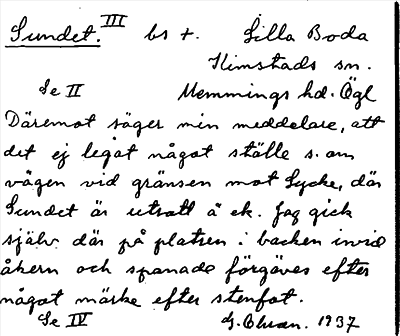 Sundet. III bs t. Lilla Boda
Kimstads sn.
Se II Memmings hd. Ögl
Däremot säger min meddelare, att
det ej legat något ställe s. om
vägen vid gränsen mot Lycke, där
Sundet är utsatt å ek. Jag gick
själv där på platsen i backen invid
åkern och spanade förgäves efter
något märke efter stenfot.
Se IV 1937